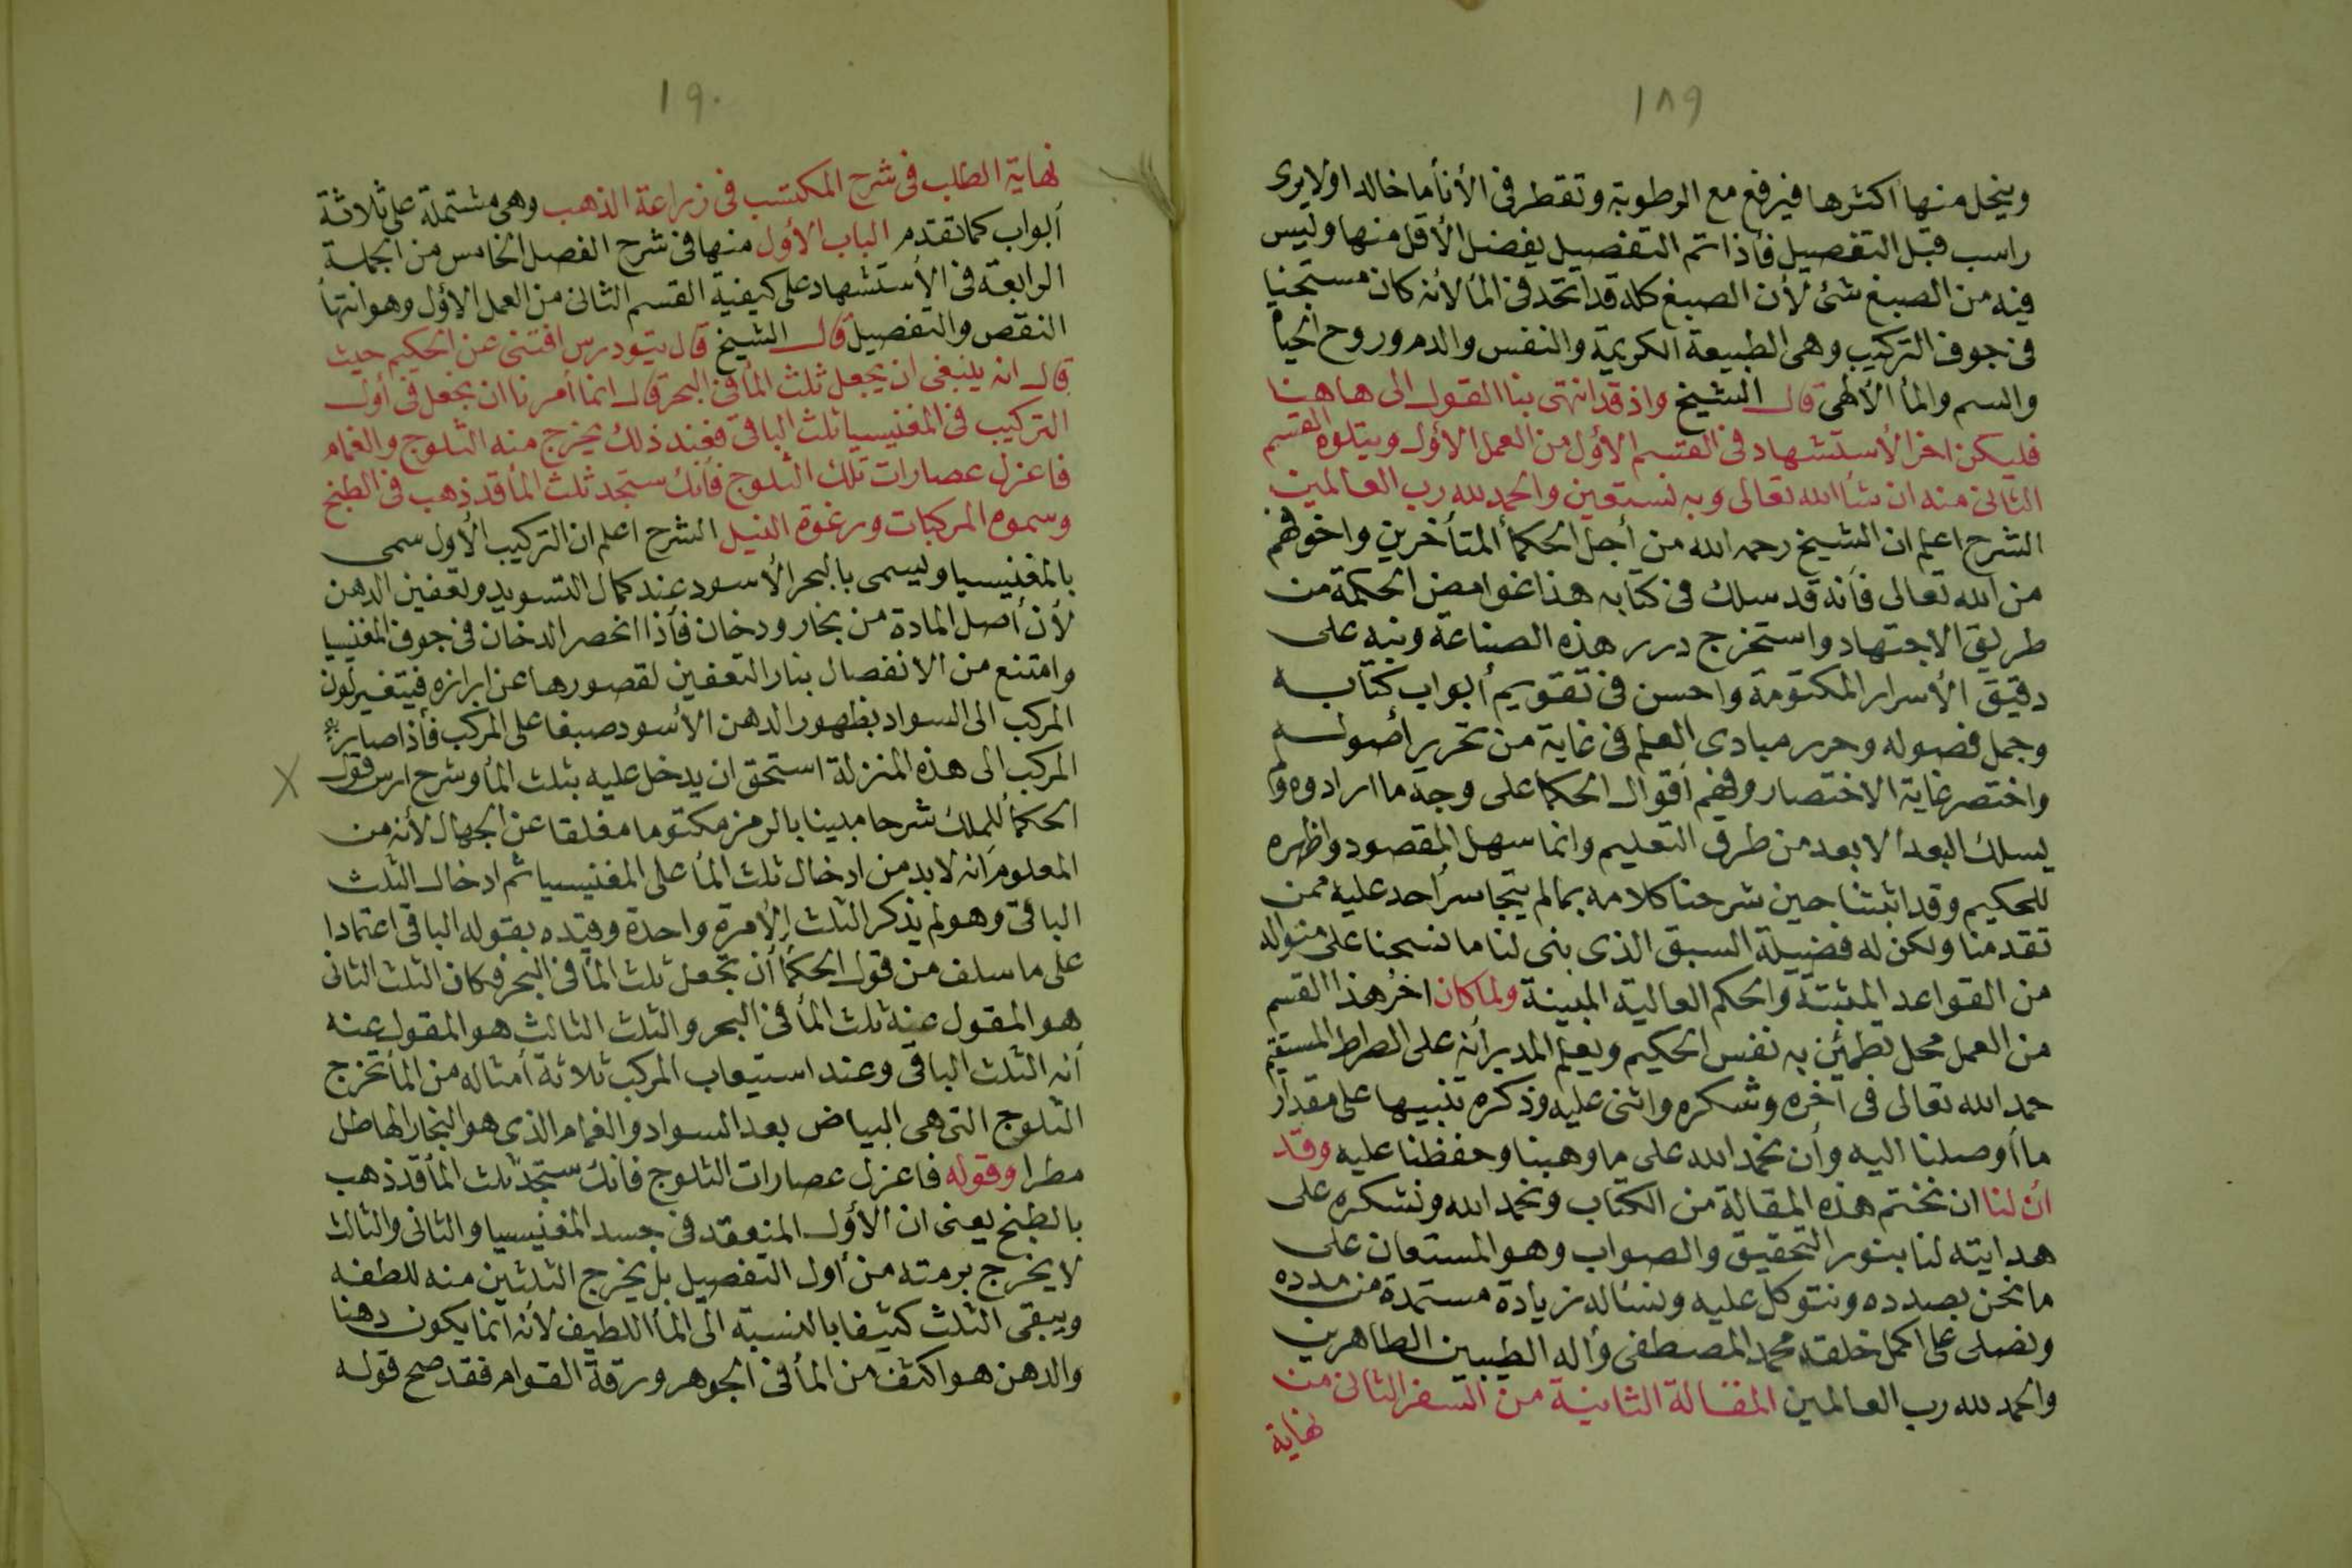 ١٨٩
وينحل منها أكثرها فيرفع مع الرطوبة وتقطر فى الأنأ ما خالدا ولا يرى
راسب قبل التفصيل فأذا تم التفصيل يفضل الأقل منها وليس
فيه من الصبغ شئ لأن الصبغ كله قد اتحد فى المأ لأنه كان مستجنيا
فى جوف التركيب وهى الطبيعة الكريمة والنفس والدم وروح الحيا
والسم والمأ الألهى قال الشيخ واذ قد انتهى بنا القول الى هاهنا
فليكن اخر الأستشهاد فى القسم الأول من العمل الأول ويتلوه القسم
الثانى منه ان شأ الله تعالى وبه نستعين والحمد لله رب العالمين
الشرح اعلم ان الشيخ رحمه الله من أجل الحكمأ المتأخرين واخوفهم
من الله تعالى فأنه قد سلك فى كتابه هذا غوامض الحكمة من
طريق الاجتهاد واستخرج درر هذه الصناعة ونبه على
دقيق الأسرار المكتومة واحسن فى تقويم أبواب كتابه
وجمل فصوله وحرر مبادى العلم فى غاية من تحرير أصوله
واختصر غاية الاختصار وفهم أقوال الحكما على وجه ما ارادوه ولم
يسلك البعد الابعد من طرق التعليم وانما سهل المقصود واظهره
للحكيم وقد اثبتنا حين شرحنا كلامه بمالم يتجاسر أحد عليه ممن
تقدمنا ولكن له فضيلة السبق الذى بنى لنا ما نسجنا على منواله
من القواعد المثبتة والحكم العالية المبينة ولما كان اخر هذا القسم
من العمل محل تطمئن به نفس الحكيم ويعلم المدبر أنه على الصراط المستقيم
حمد الله تعالى فى آخره وشكره واثنى عليه وذكره تنبيها على مقدار
ما أوصلنا اليه وأن نحمد الله على ما وهبنا وحفظنا عليه وقد
أن لنا ان نختم هذه المقالة من الكتاب ونحمد الله ونشكره على
هدايته لنا بنور التحقيق والصواب وهو المستعان على
ما نحن بصدده ونتوكل عليه ونسأله زيادة مستمدة من مدده
ونصلى على اكمل خلقه محمد المصطفى وأله الطيبين الطاهرين
والحمد لله رب العالمين المقالة الثانية من السفر الثانى من
نهاية
١٩٠
نهاية الطلب فى شرح المكتسب فى زراعة الذهب وهى مشتملة على ثلاثة
أبواب كما تقدم الباب الأول منها فى شرح الفصل الخامس من الجملة
الرابعة فى الأستشهاد على كيفية القسم الثانى من العمل الأول وهو انتهأ
النقص والتفصيل قال الشيخ قال تيودرس افتنى عن الحكيم حيث
قال انه ينبغى ان يجعل ثلث المأ فى البحر قال انما أمرنا ان نجعل فى أول
التركيب فى المغنيسيا ثلث الباقى فعند ذلك يخرج منه الثلوج والغمام
فاعزل عصارات تلك الثلوج فأنك ستجد ثلث المأ قد ذهب فى الطبخ
وسموه المركبات ورغوة النيل الشرح اعلم ان التركيب الأول سمى
بالمغنيسيا ويسمى بالبحر الأسود عند كمال التسويد وتعفين الدهن
لأن أصل المادة من بخار ودخان فأذا انحصر الدخان فى جوف المغنيسيا
وامتنع من الانفصال بنار التعفين لقصورها عن ابرازه فيتغير لون
المركب الى السواد بظهور الدهن الأسود صبغا على المركب فأذا صاير
المركب الى هذه المنزلة استحق ان يدخل عليه بثلث المأ وشرح ارس قول
الحكمأ للملك شرحا مبينا بالرمز مكتوما مغلقا عن الجهال لأنه من
المعلوم انه لابد من ادخال ثلث المأ على المغنيسيا ثم ادخال الثلث
الباقى وهو لم يذكر الثلث الأمرة واحدة وقيده بقوله الباقى اعتمادا
على ما سلف من قول الحكمأ أن تجعل ثلث المأ فى البحر فكان الثلث الثانى
هو المقول عنه ثلث المأ فى البحر والثلث الثالث هو المقول عنه
أنه الثلث الباقى وعند استيعاب المركب ثلاثة أمثاله من المأ تخرج
الثلوج التى هى البياض بعد السواد والغمام الذى هو البخار الهاطل
مطرا وقوله فاعزل عصارات الثلوج فانك ستجد ثلث المأ قد ذهب
بالطبخ يعنى ان الأول المنعقد فى جسد المغنيسيا والثانى والثالث
لا يخرج برمته من أول التفصيل بل يخرج الثلثين منه للطفه
ويبقى الثلث كثيفا بالنسبة الى المأ اللطيف لأنه انما يكون دهنا
والدهن هو اكثف من المأ فى الجوهر ورقة القوام فقد صح قوله